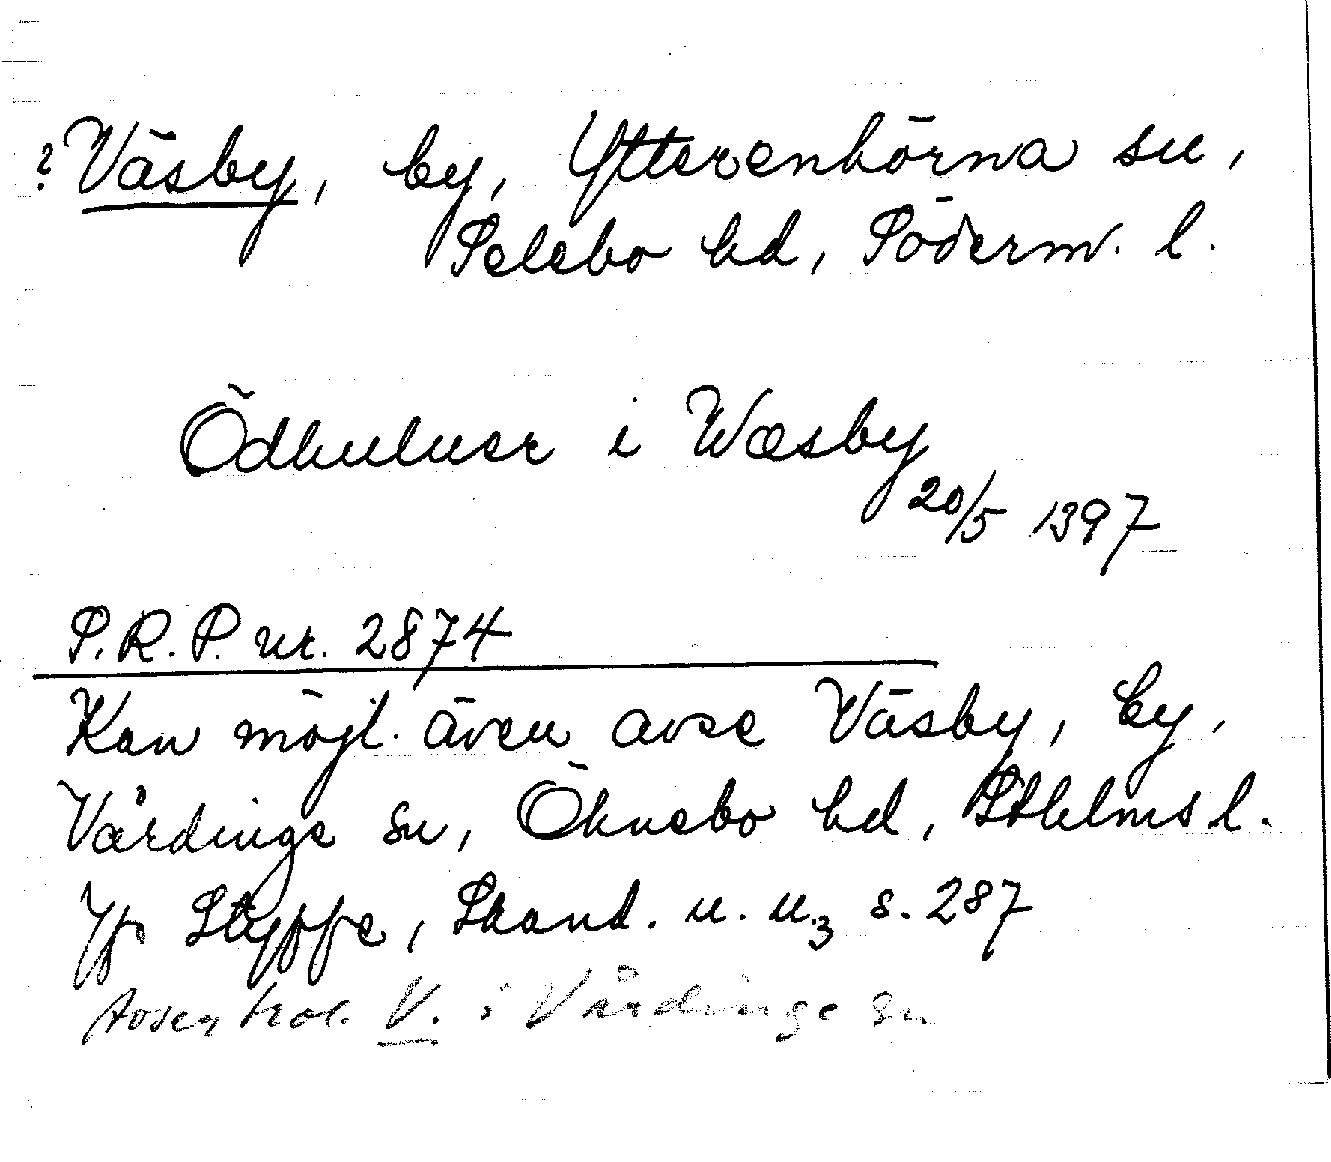 ? Väsby, by, Ytterenhörna sn,
Selebo hd, Söderm. l.
Ödhuluer i Wæsby
20/5 1397
S.R.P. nr. 2874
Kan möjl. även avse Väsby, by,
Vårdinge sn, Öknebo hd, Sthlms l.
Jfr Styffe, Skand. u. u.3 s. 287
Avser trol. V. i Vårdinge sn